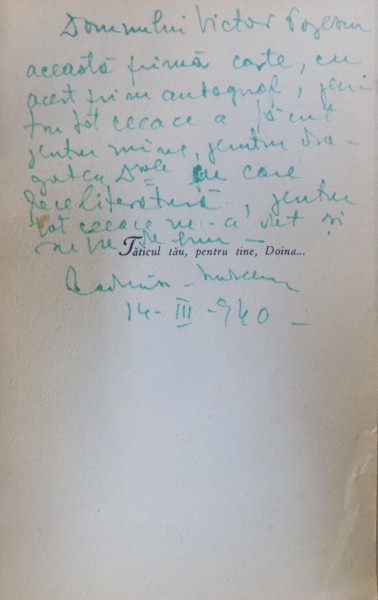 Domnului Victor
această primă carte, cu
acest prim autograf, pen-
tru tot ceeace a făcut
pentru mine, pentru dra-
gostea cu care
face literatură, pentru
tot ceeace ne-a dat și
ne
Tăticul tău, pentru tine, Doina...
14-III-940